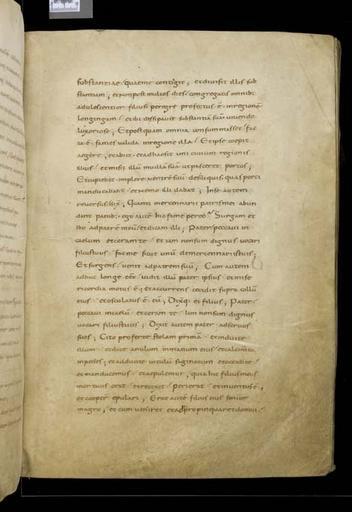 substantiae quae me contigit, et divisit illis sub
stantiam, et non post multos dies congregatis omnibus
adulescentior filius peregre profectus ē in regionē
longinquam et ibi dissipavit substantiā suā vivendo
luxoriose, Et postquam omnia consummasset fac
ta ē fames valida in regione illa, Et ipse coepit
aegere, et abiit et adhaesit uni civium regionis
illius et misit illū in villā suā ut pasceret porcos,
Et cupiebat implere ventrē suū de siliquis quas porci
manducabant et nemo illi dabat, In se autem
reversus dixit, Quanti mercennarii patris mei abun
dant panib; ego autē hic fame pereo, Surgam et
ibo ad patrē meū et dicam illi, Pater peccavi in
caelum et coram te et iam non sum dignus vocari
filius tuus fac me sicut unū de mercennariis tuis,
Et surgens venit ad patrem suū, Cum autem
adhuc longe eēt vidit illū pater ipsius et mise
ricordia motus ē et accurrens cecidit supra collū
eius et osculatus ē eū, Dixitq; ei filius, Pater
peccavi in caelū et coram te iam non sum dignus
vocari filius tuus, Dixit autem pater ad servos
suos, Cito proferte stolam primā et induite
illum et date anulum in manum eius et calciamta
in pedes, et adducite vitulū saginatum et occidite
et manducemus et aepulemur, quia hic filius meus
mortuus erat et revixit perierat et inventus ē,
et coeper epulari, Erat autē filius eius senior
in agro, et cum veniret et adpropinquaret domui